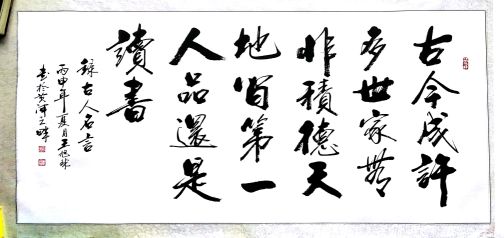 古今成許
多世家無
非積德天
地間第一
人品還是
讀書
錄古人名言
丙申年夏月王旭林
書於黃河之畔